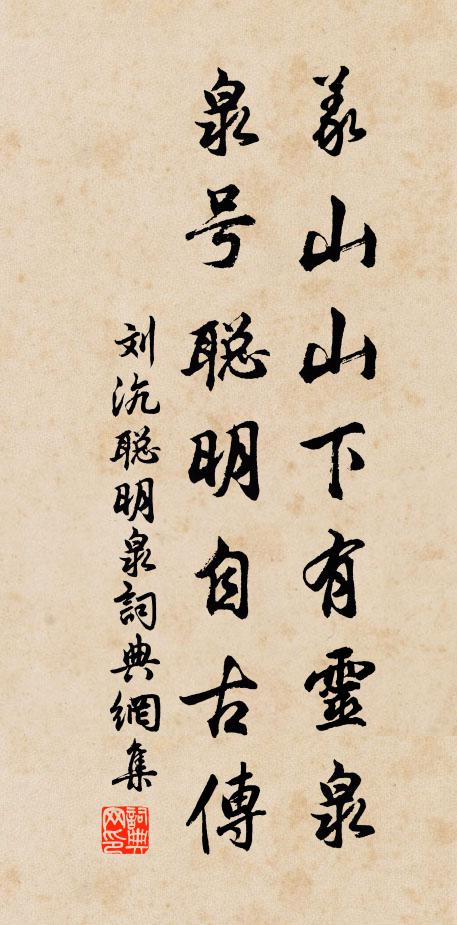 義山山下有靈泉
泉号聪明自古傳
刘沆聪明泉詞典網集
詞典
网印